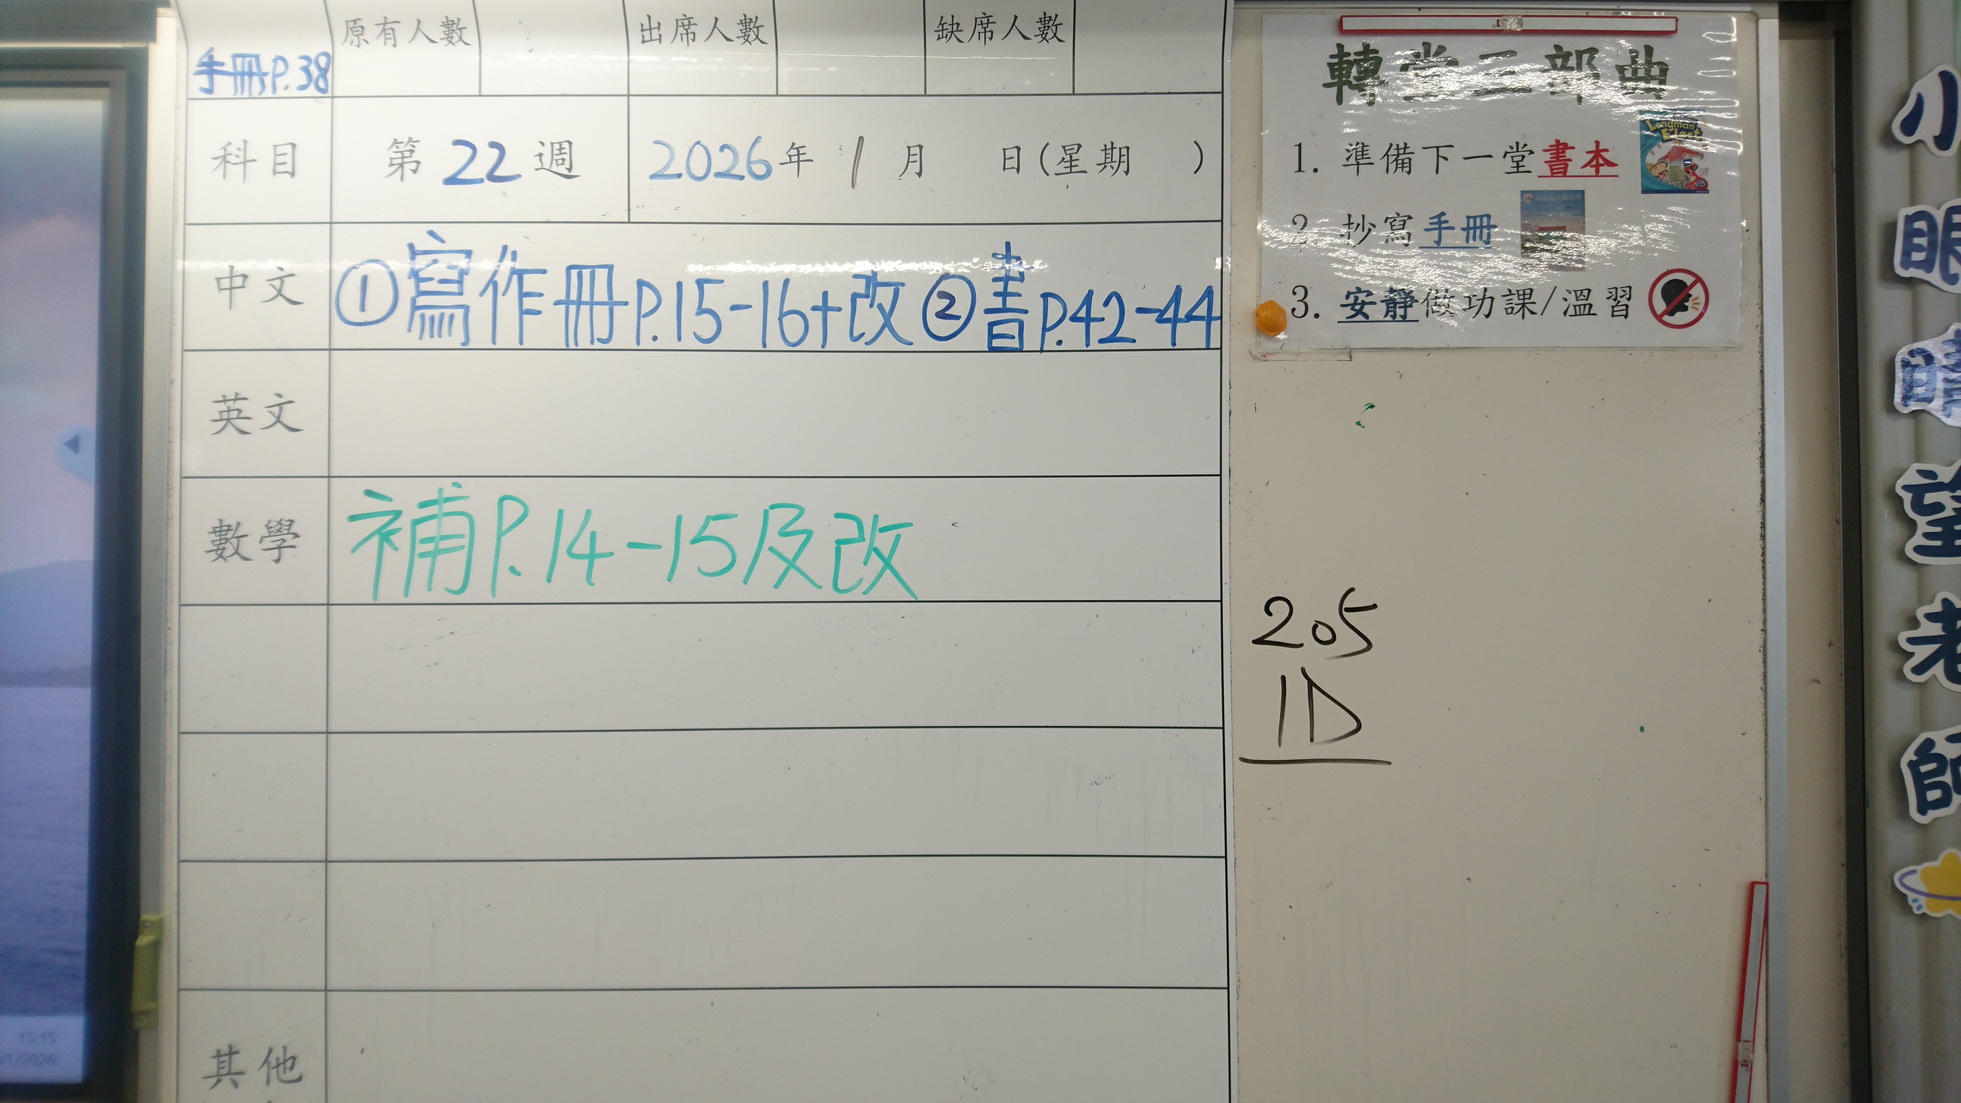 原有人數 出席人數 缺席人數
手冊P.38
科目 第22週 2026年1月 日(星期 )
中文 ①寫作冊P.15-16+改 ②書P.42-44
英文
數學 補P.14-15及改
其他
轉堂三部曲
1. 準備下一堂書本
Longman Elect
2. 抄寫手冊
3. 安靜做功課/溫習
205
1D
小眼睛望老師
15:15
/1/2026